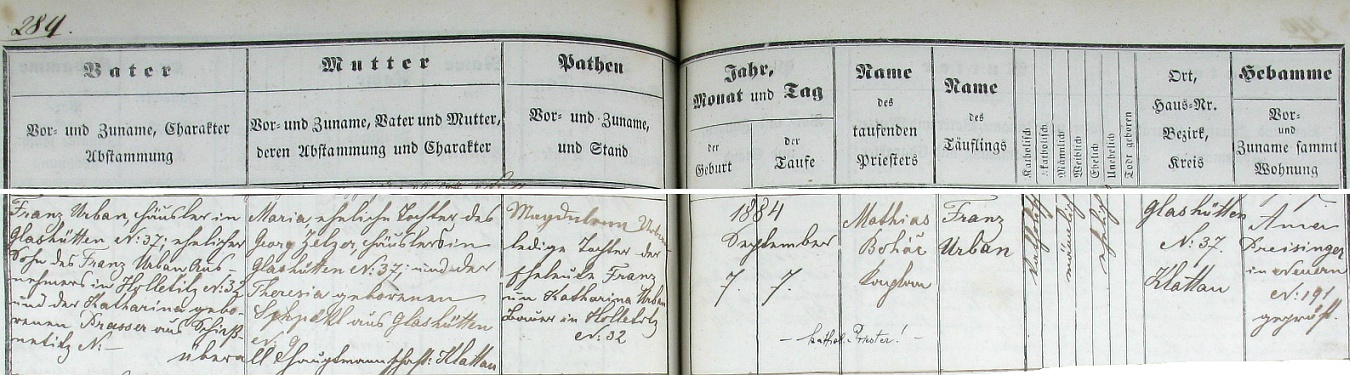 284.
Vater
Vor- und Zuname, Charakter
Abstammung
Mutter
Vor- und Zuname, Vater und Mutter,
deren Abstammung und Charakter
Pathen
Vor- und Zuname,
und Stand
Jahr,
Monat und Tag
der
Geburt
der
Taufe
Name
des
taufenden
Priesters
Name
des
Täuflings
Katholisch
Männlich
Weiblich
Ehelich
Unehelich
Todt geboren
Ort,
Haus-Nr.
Bezirk,
Kreis
Hebamme
Vor-
und
Zuname sammt
Wohnung
Franz Urban, Häusler in
Glashütten N: 37; ehelicher
Sohn des Franz Urban Aus-
nehmers in Holletitz N: 32
und der Katharina gebo-
renen Prasser aus
N: – überall Hauptmannschaft: Klattau
Maria, eheliche Tochter des
Georg Zelzer, Häuslers in
Glashütten N: 37; und der
Theresia geborenen
aus Glashütten
N: 9
Magdalena Urban
ledige Tochter der
Eheleute Franz
un Katharina Urban
Bauer in Holletitz
N: 32
1884
September
7. 7.
Mathias
Bohác
Kaplan
– kathol. Priester! –
Franz
Urban
katholisch
männlich
ehelich
Glashütten
N: 37.
Klattau
Anna
Preisinger
in Neuern
N: 191
geprüft.